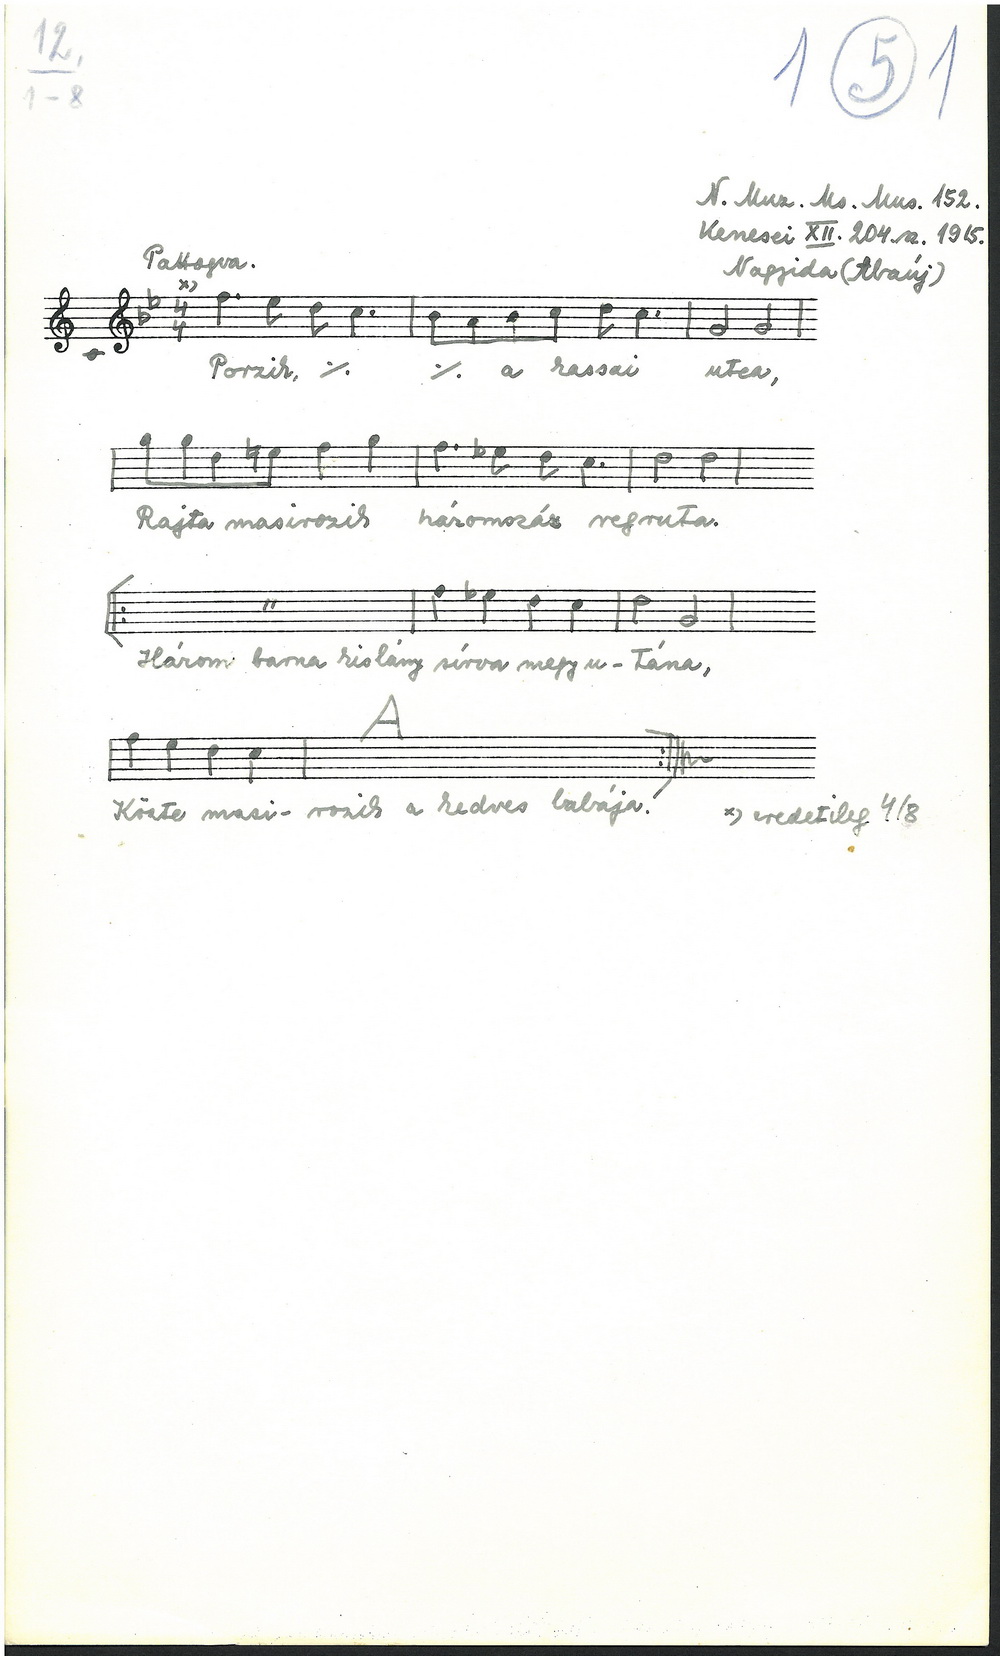 12,
1-8
1 5 1
N. Muz. Ms. Mus. 152.
Kenesei XII. 204.sz. 1915.
Nagyida (Abaúj)
Pattogva.
x) 4/4
Porzik, ·/. ·/. a kassai utca,
Rajta masirozik háromszáz regruta.
"
Három barna kislány sírva megy u-tána,
A
Közte masi-rozik a kedves babája!
x) eredetileg 4/8